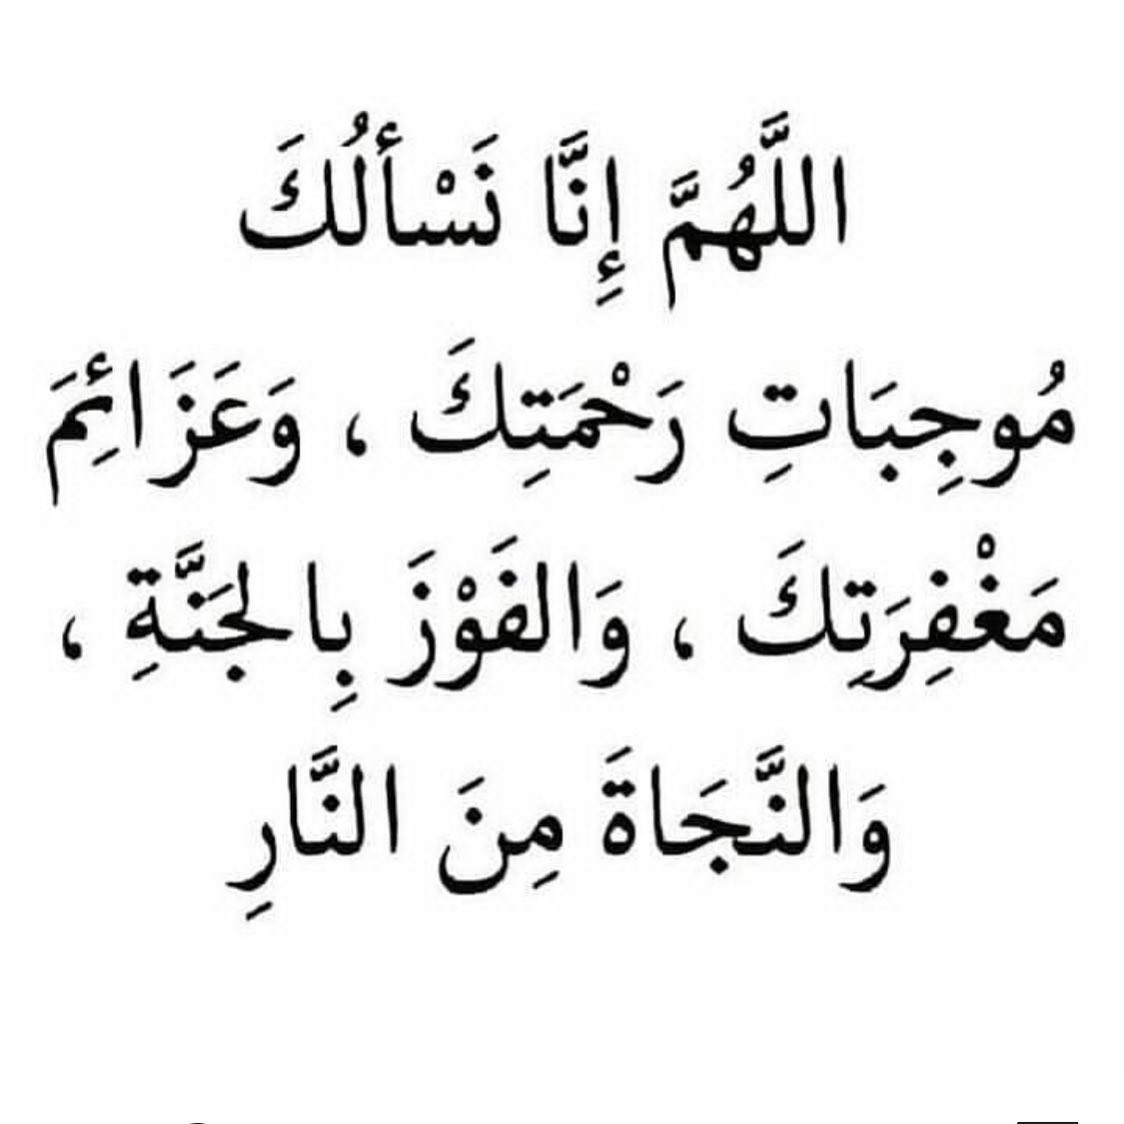 اللَّهُمَّ إِنَّا نَسْأَلُكَ
مُوجِبَاتِ رَحْمَتِكَ ، وَعَزَائِمَ
مَغْفِرَتِكَ ، وَالفَوْزَ بِالجَنَّةِ ،
وَالنَّجَاةَ مِنَ النَّارِ